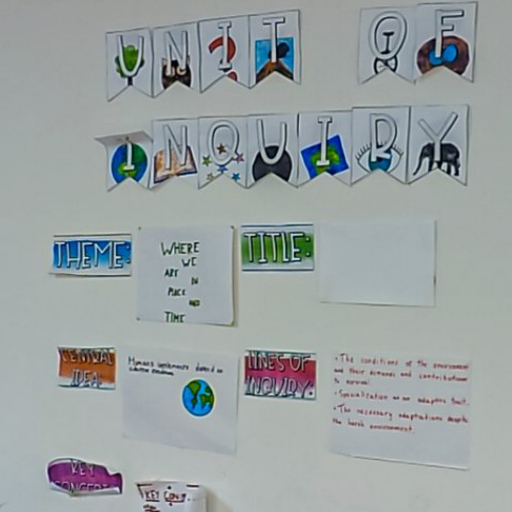 UNIT OF
INQUIRY
THEME:
WHERE
WE
ARE
IN
PLACE
AND
TIME
TITLE:
CENTRAL
IDEA:
LINES OF
INQUIRY:
• The conditions of the environment
and their demands and contributions
to survival
• Specialization as an adaptive
• The necessary adaptations despite
the harsh environment.
KEY
CONCEPTS
KEY